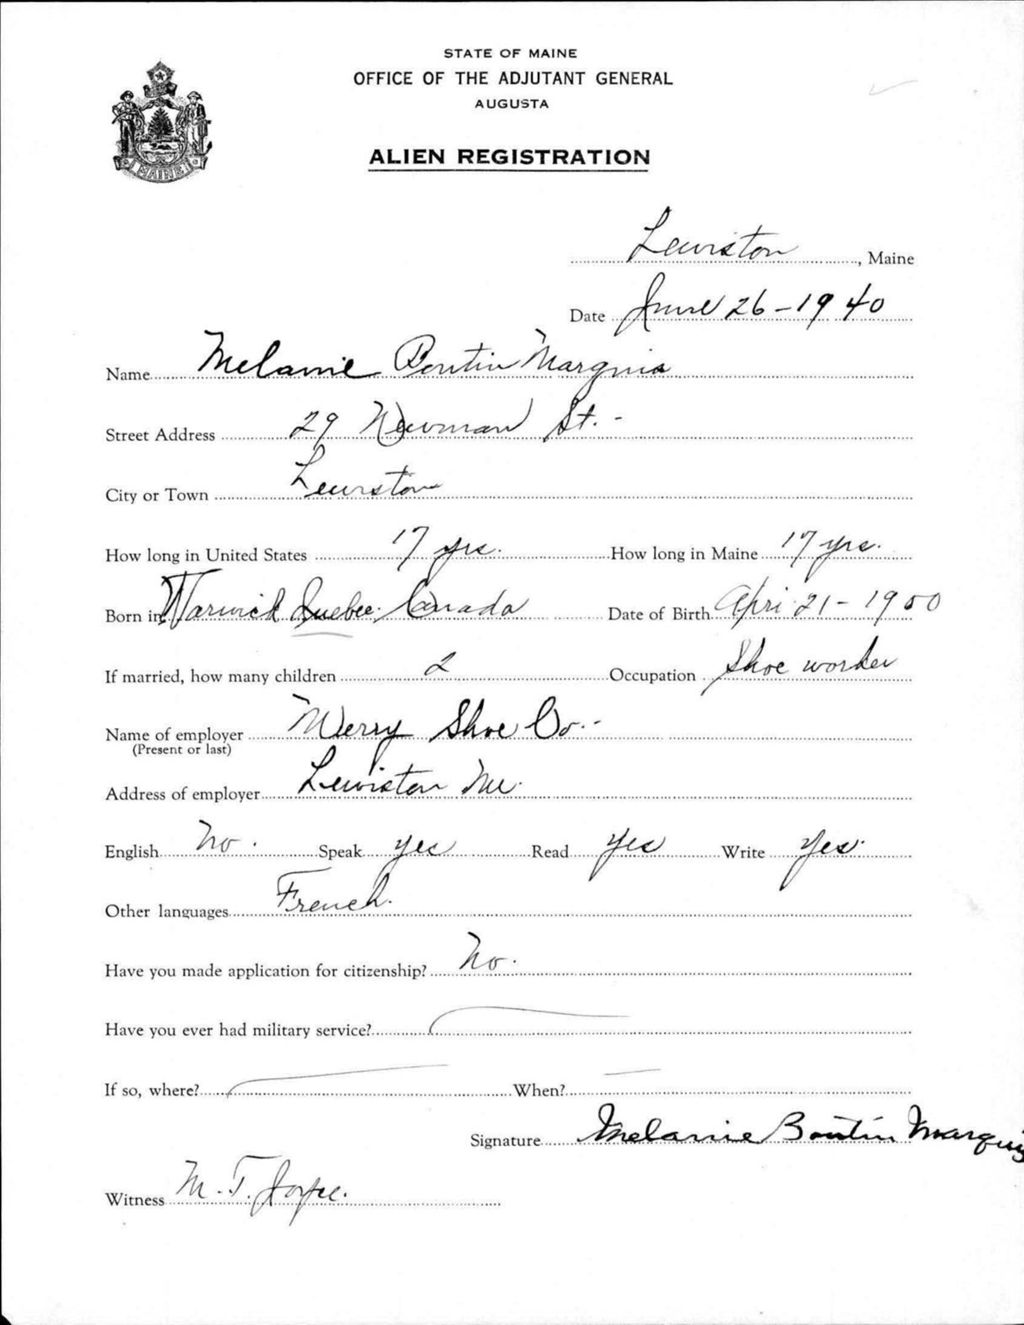 STATE OF MAINE
OFFICE OF THE ADJUTANT GENERAL
AUGUSTA
ALIEN REGISTRATION
MAINE
Lewiston, Maine
Date June 26-1940
Name Melanie Boutin Marquis
Street Address 29 Newman St.-
City or Town Lewiston
How long in United States 17 yrs. How long in Maine 17 yrs.
Born in Warwick Quebec. Canada Date of Birth Apri 21-1900
If married, how many children 2 Occupation Shoe worker
Name of employer Merry Shoe Co.-
(Present or last)
Address of employer Lewiston Me.
English No. Speak yes Read Yes Write Yes.
Other languages French.
Have you made application for citizenship? No.
Have you ever had military service?
If so, where? When?
Signature Melanie Boutin Marquis
Witness M. T.